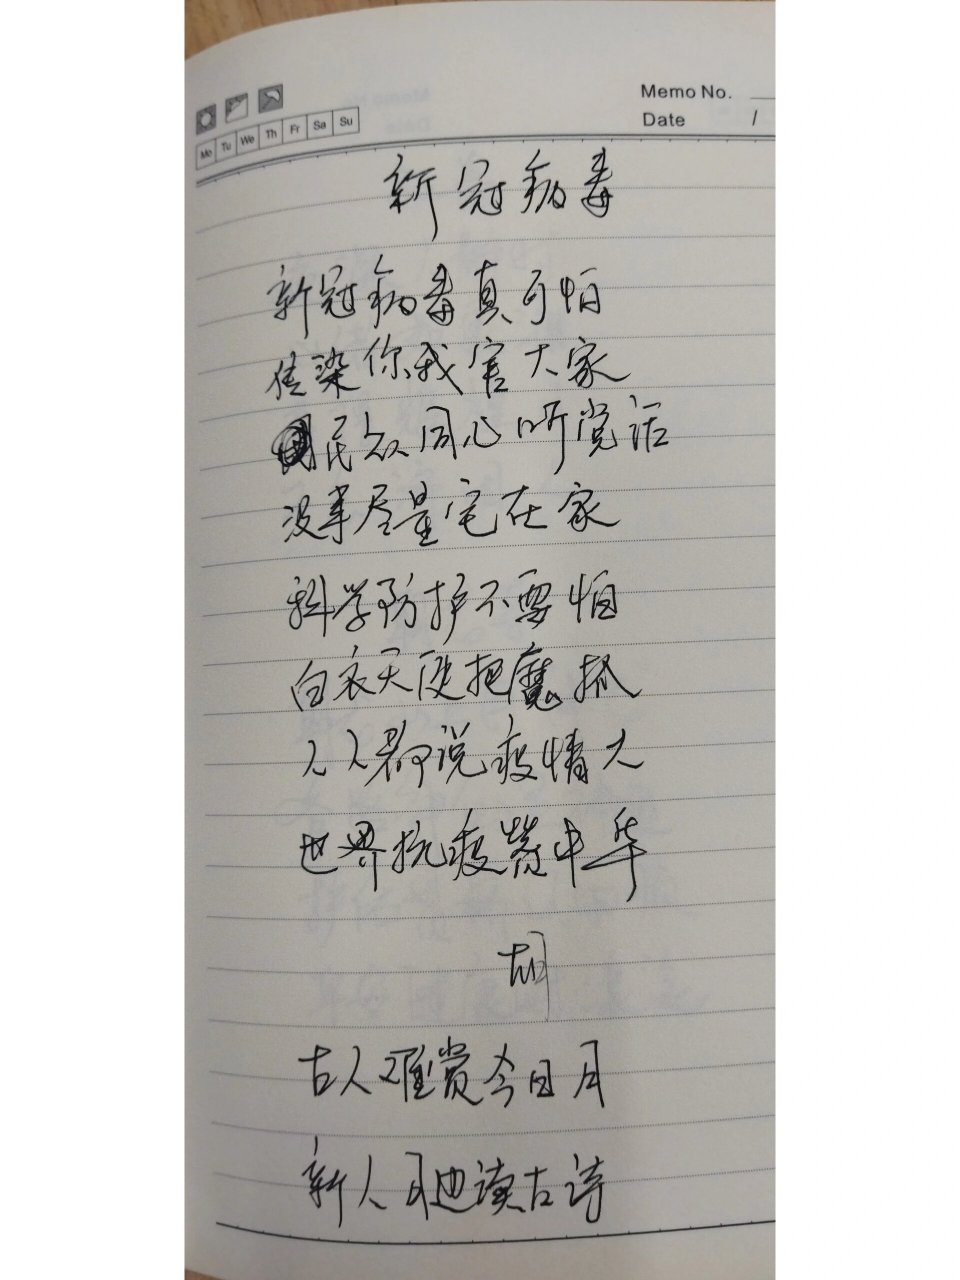 Memo No.
Date /
Mo Tu We Th Fr Sa Su
新冠病毒
新冠病毒真可怕
传染你我害大家
民众同心听党话
没事尽量宅在家
科学防护不要怕
白衣天使把魔抓
人人都说疫情大
世界抗疫赞中华
胡
古人难赏今日月
新人月边读古诗